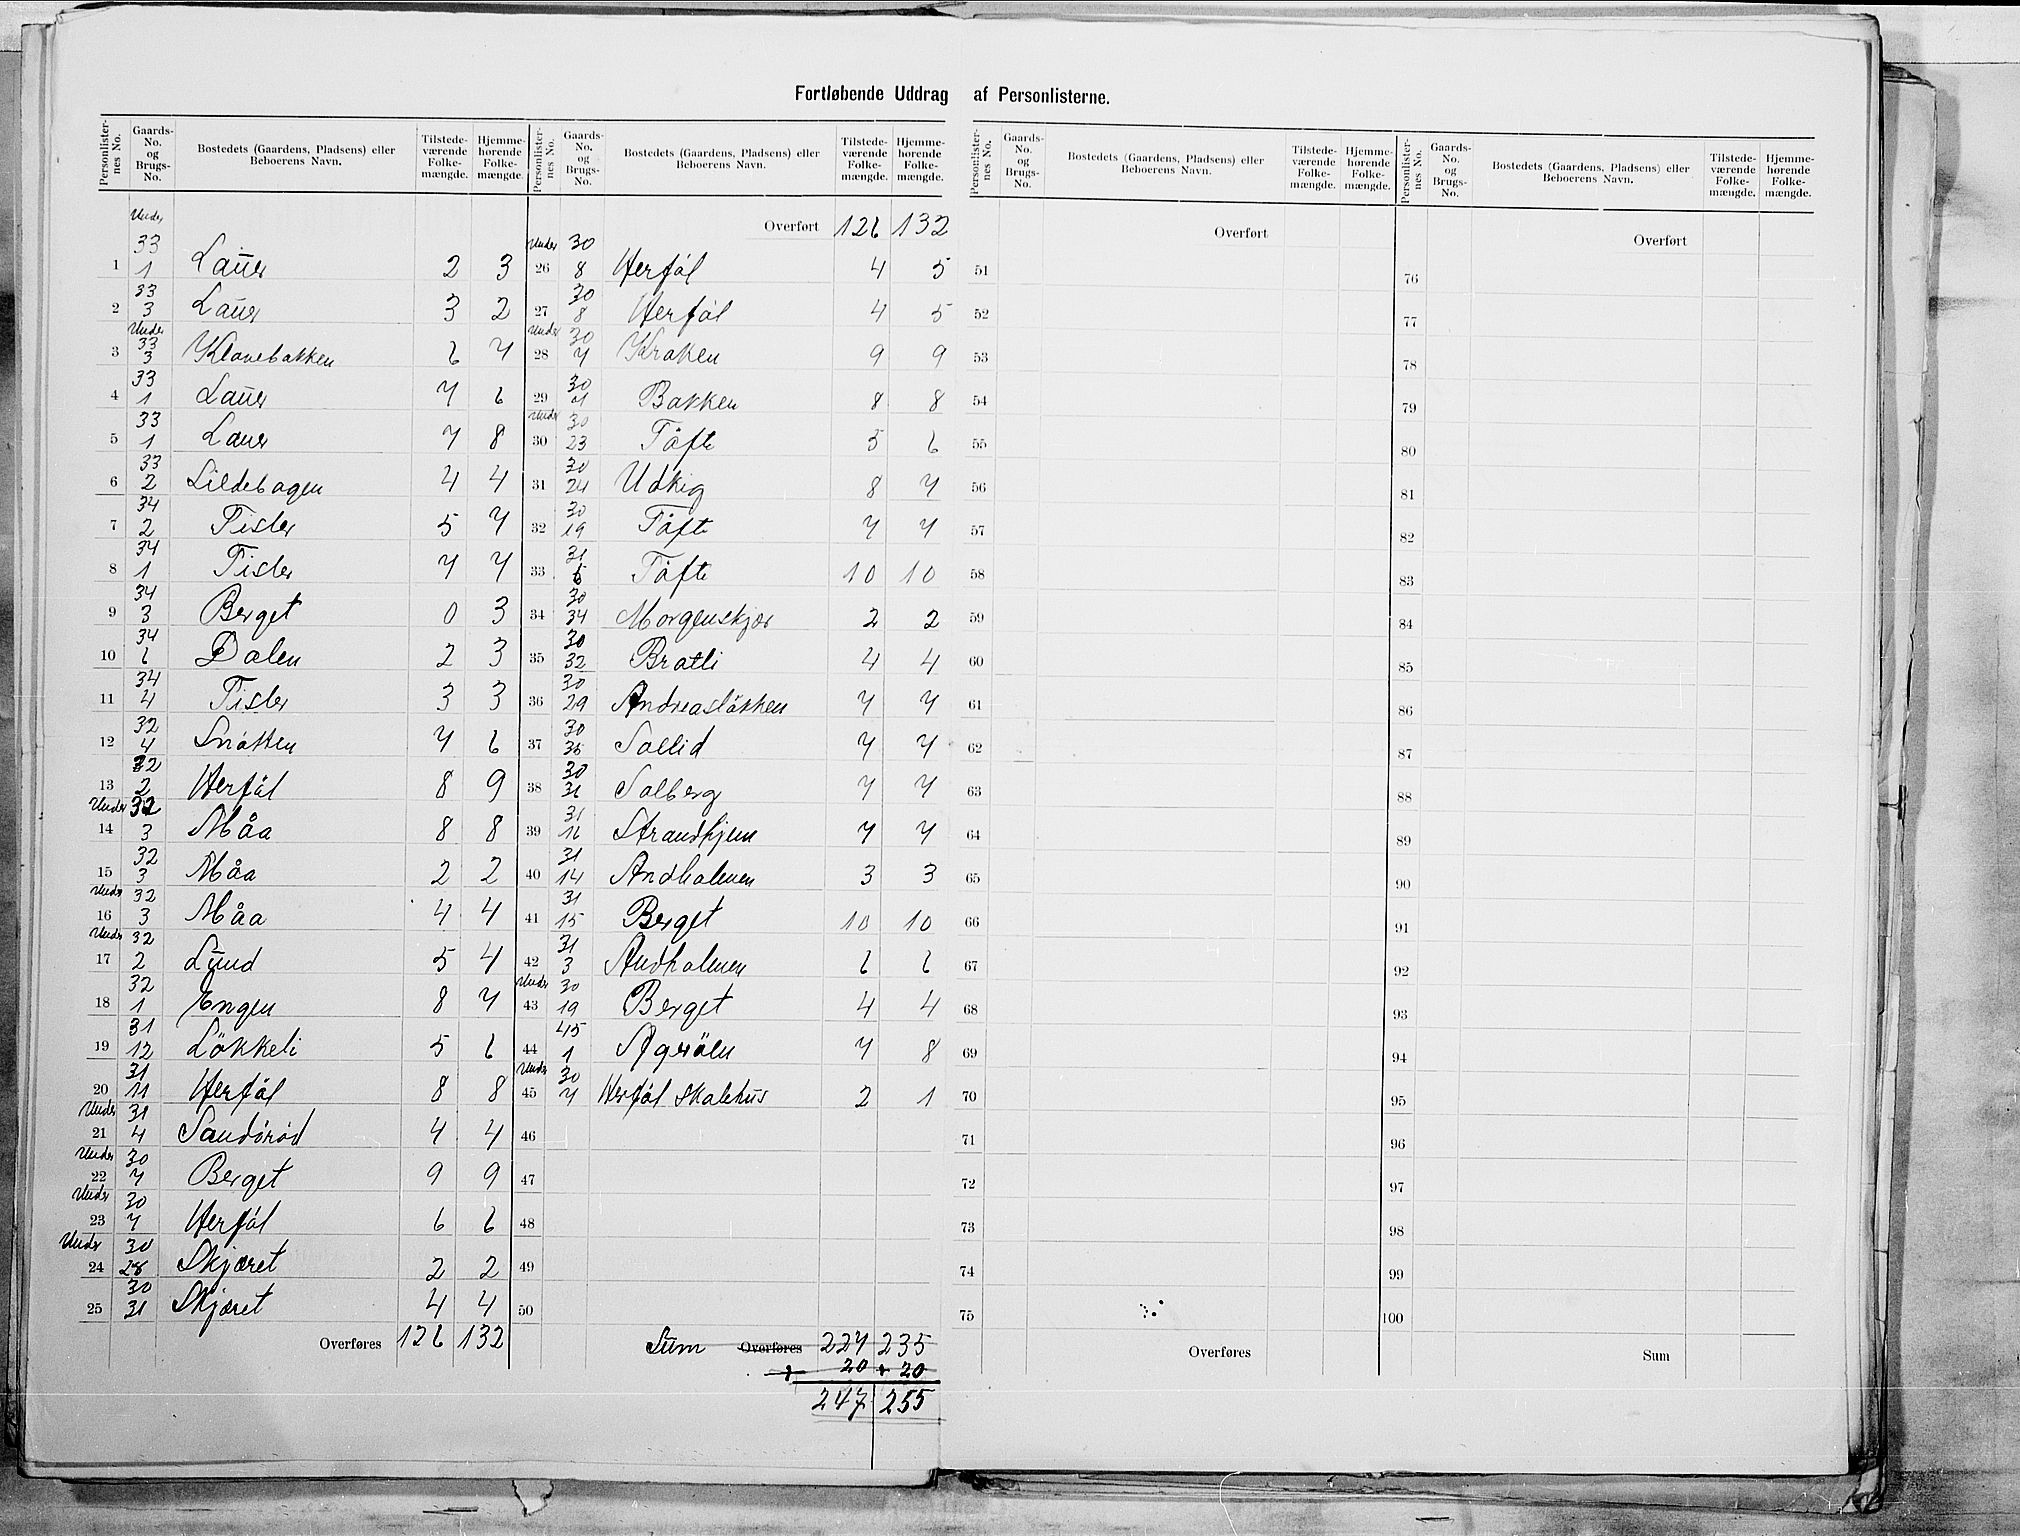 Fortløbende Uddrag af Personlisterne.
Personlister-nes No. | Gaards-No. og Brugs-No. | Bostedets (Gaardens, Pladsens) eller Beboerens Navn. | Tilstede-værende Folke-mængde. | Hjemme-hørende Folke-mængde.
1 Under 33 1 Lauer 2 3
2 33 3 Lauer 3 2
3 Under 33 3 Klovebakken 6 7
4 33 1 Lauer 7 6
5 33 1 Lauer 7 8
6 33 2 Lildebagen 4 4
7 34 2 Tisler 5 7
8 34 1 Tisler 7 7
9 34 3 Berget 0 3
10 34 6 Dalen 2 3
11 34 4 Tisler 3 3
12 32 4 Snøtten 7 6
13 32 2 Herføl 8 9
14 Under 32 3 Måa 8 8
15 32 3 Måa 2 2
16 Under 32 3 Måa 4 4
17 Under 32 2 Lund 5 4
18 32 1 Engen 8 7
19 31 12 Løkkeli 5 6
20 31 11 Herføl 8 8
21 Under 31 4 Sandørød 4 4
22 Under 30 7 Berget 9 9
23 Under 30 7 Herføl 6 6
24 Under 30 28 Skjæret 2 2
25 30 31 Skjæret 4 4
Overføres 126 132
Personlister-nes No. | Gaards-No. og Brugs-No. | Bostedets (Gaardens, Pladsens) eller Beboerens Navn. | Tilstede-værende Folke-mængde. | Hjemme-hørende Folke-mængde.
Overført 126 132
26 Under 30 8 Herføl 4 5
27 30 8 Herføl 4 5
28 Under 30 7 Kroken 9 9
29 30 7 Bakken 8 8
30 Under 30 23 Tøfte 5 6
31 30 24 Udkig 8 7
32 30 19 Tøfte 7 7
33 31 6 Tøfte 10 10
34 30 34 Morgenskjær 2 2
35 30 32 Bratli 4 4
36 30 29 Andreasløkken 7 7
37 30 36 Sollid 7 7
38 30 31 Solberg 7 7
39 31 16 Strandhjem 7 7
40 31 14 Andholmen 3 3
41 31 15 Berget 10 10
42 31 3 Andholmen 6 6
43 Under 30 19 Berget 4 4
44 45 1 Agrølen 7 8
45 Under 30 7 Herføl Skolehus 2 1
46
47
48
49
50
Sum Overføres 227 235
+ 20 + 20
247 255
Personlister-nes No. | Gaards-No. og Brugs-No. | Bostedets (Gaardens, Pladsens) eller Beboerens Navn. | Tilstede-værende Folke-mængde. | Hjemme-hørende Folke-mængde.
Overført
51
52
53
54
55
56
57
58
59
60
61
62
63
64
65
66
67
68
69
70
71
72
73
74
75
Overføres
Personlister-nes No. | Gaards-No. og Brugs-No. | Bostedets (Gaardens, Pladsens) eller Beboerens Navn. | Tilstede-værende Folke-mængde. | Hjemme-hørende Folke-mængde.
Overført
76
77
78
79
80
81
82
83
84
85
86
87
88
89
90
91
92
93
94
95
96
97
98
99
100
Sum